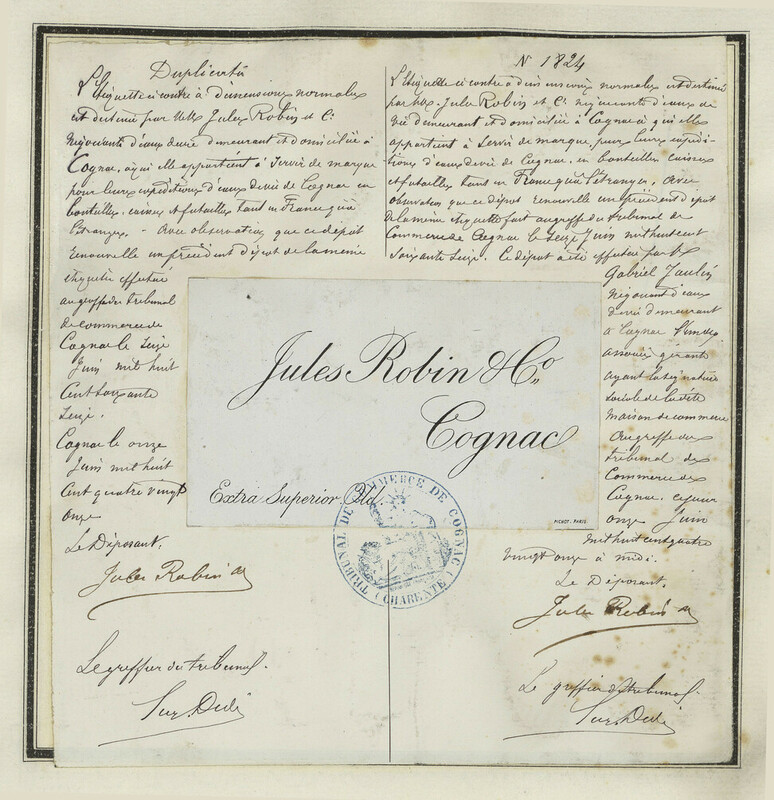 Duplicata
L'Etiquette ci contre à dimensions normales
est destinée par MM. Jules Robin et Cie
Négociants d'eaux devie demeurant et domiciliés à
Cognac, à qui elle appartient à servir de marque
pour leurs expéditions d'eaux devie de Cognac en
bouteilles, caisses et futailles tant en France qu'à
l'étranger. - Avec observation, que ce dépôt
renouvelle un précédent dépôt de la même
étiquette effectué
au greffe du tribunal
de commerce de
Cognac le seize
Juin mil huit
Cent soixante
seize.
Cognac le onze
Juin mil huit
Cent quatre vingt
onze
Le Déposant,
Jules Robin
Le greffier du tribunal.
N 1824
L'Etiquette ci contre à dimensions normales est destinée
par MM. Jules Robin et Cie négociants d'eaux de
vie demeurant et domiciliés à Cognac à qui elle
appartient à servir de marque, pour leurs expédi-
tions d'eaux devie de Cognac, en bouteilles caisses
et futailles tant en France qu'à l'étranger, Avec
observation que ce dépôt renouvelle un précédent dépôt
de la même étiquette fait au greffe du tribunal de
Commerce de Cognac le seize Juin mil huit cent
soixante seize. Le dépôt a été effectué par M
Gabriel
Négociant d'eaux
devie demeurant
à Cognac l'un des
associés gérants
ayant la signature
sociale de la dite
maison de commerce
Au greffe du
tribunal de
Commerce de
Cognac. ce jour
onze Juin
mil huit cent quatre
vingt onze à midi.
Le Déposant.
Jules Robin
Le greffier du tribunal.
Jules Robin & Co.
Cognac
Extra Superior Old.
PICHOT. PARIS
TRIBUNAL DE COMMERCE DE COGNAC
(CHARENTE)